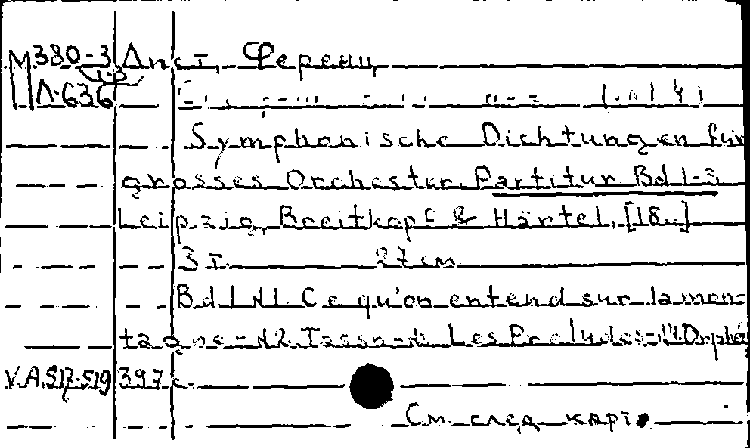 М380-3 Лист, Ференц
1-3
Л-636
Symphonische Dichtungen für
grosses Orchester. Partitur Bd 1-3
Leipzig, Breitkopf & Härtel, [18..]
3 т. 27 см
Bd.1 N1. Ce qu'on entend sur la mon-
tagne.-N2. Tasso- Les Preludes- Orphé
V.A.517-519 397 с.
См. след. карт.